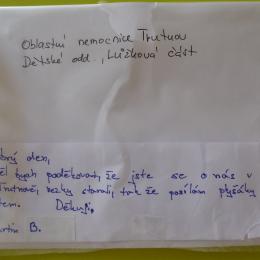 Oblastní nemocnice Trutnov
Dětské odd., Lůžková část
brý den,
ěl bych poděkovat, že jste se o nás v
rutnově, hezky starali, tak že posílám plyšáky
tem. Děkuji,
artin B.